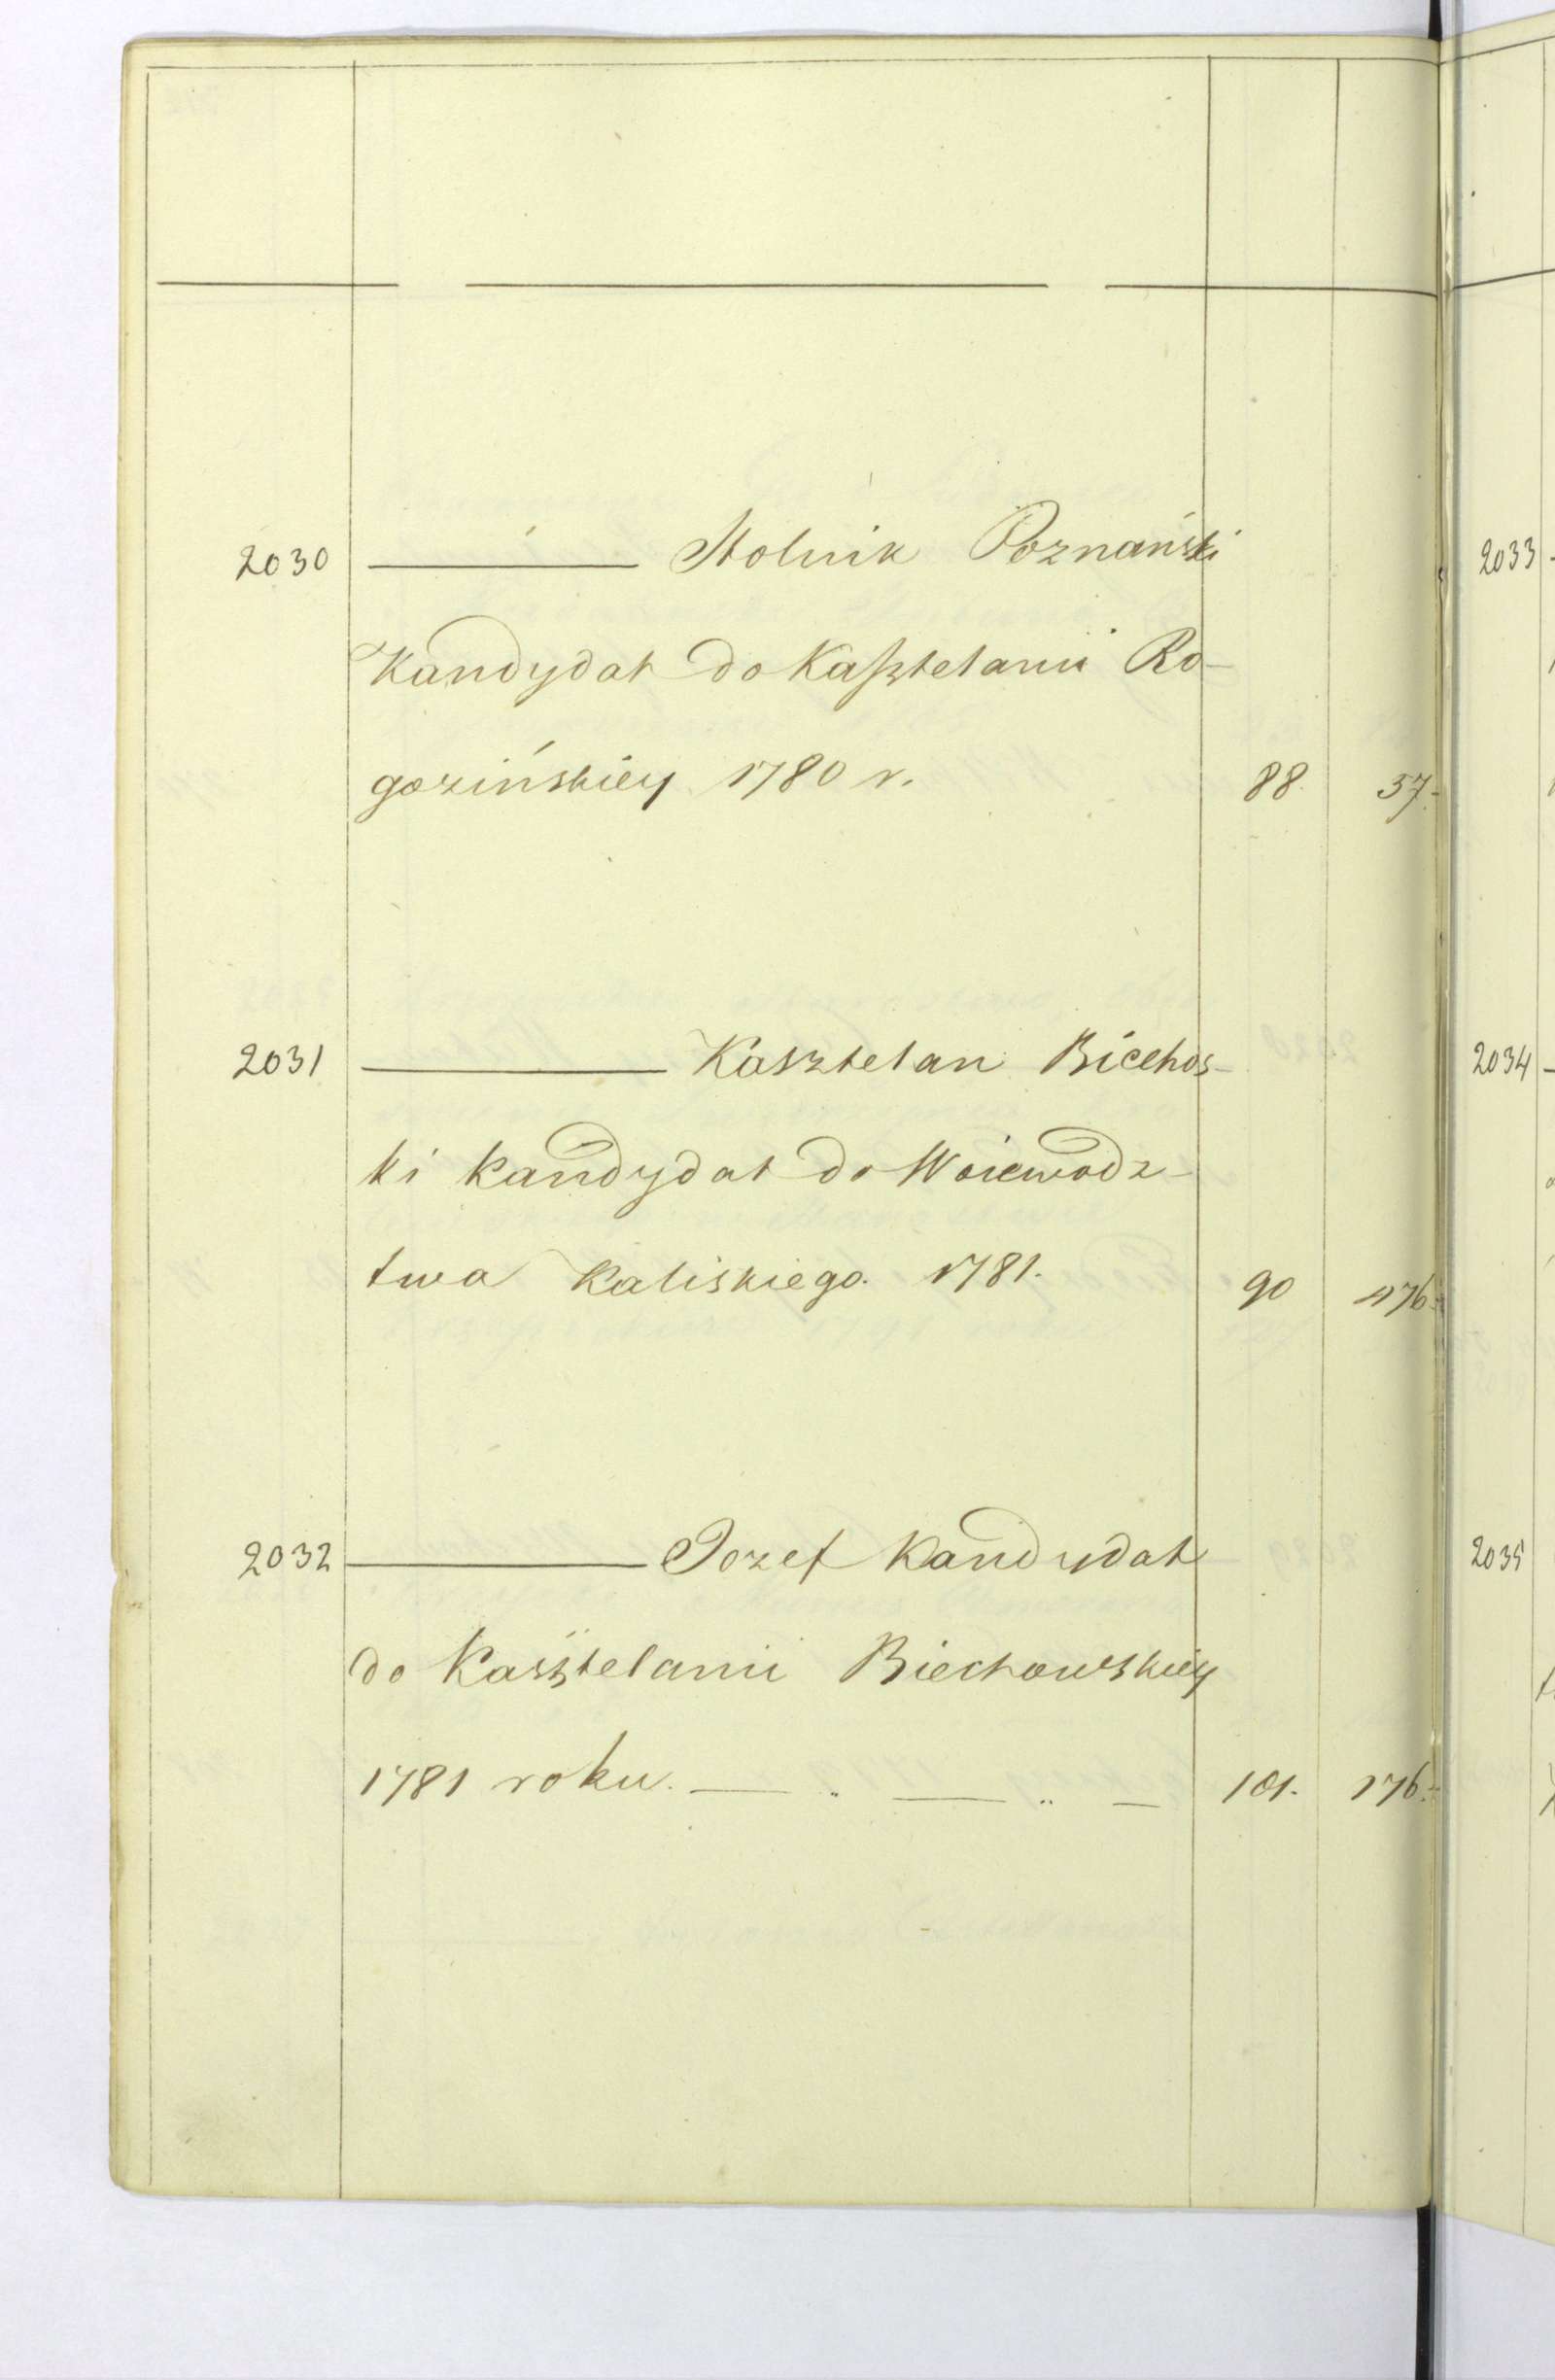 2030 ——— Stolnik Poznański
Kandydat do Kasztelanii Ro-
gozińskiey 1780 r. 88. 37.
2031 ——— Kasztelan Biechos-
ki kandydat do Woiewodz-
twa Kaliskiego. 1781. 90 176.
2032 ——— Jozef Kandydat
do Kasztelanii Biechowskiey
1781 roku. — „ — „ — 101. 176.
2033
2034
2035